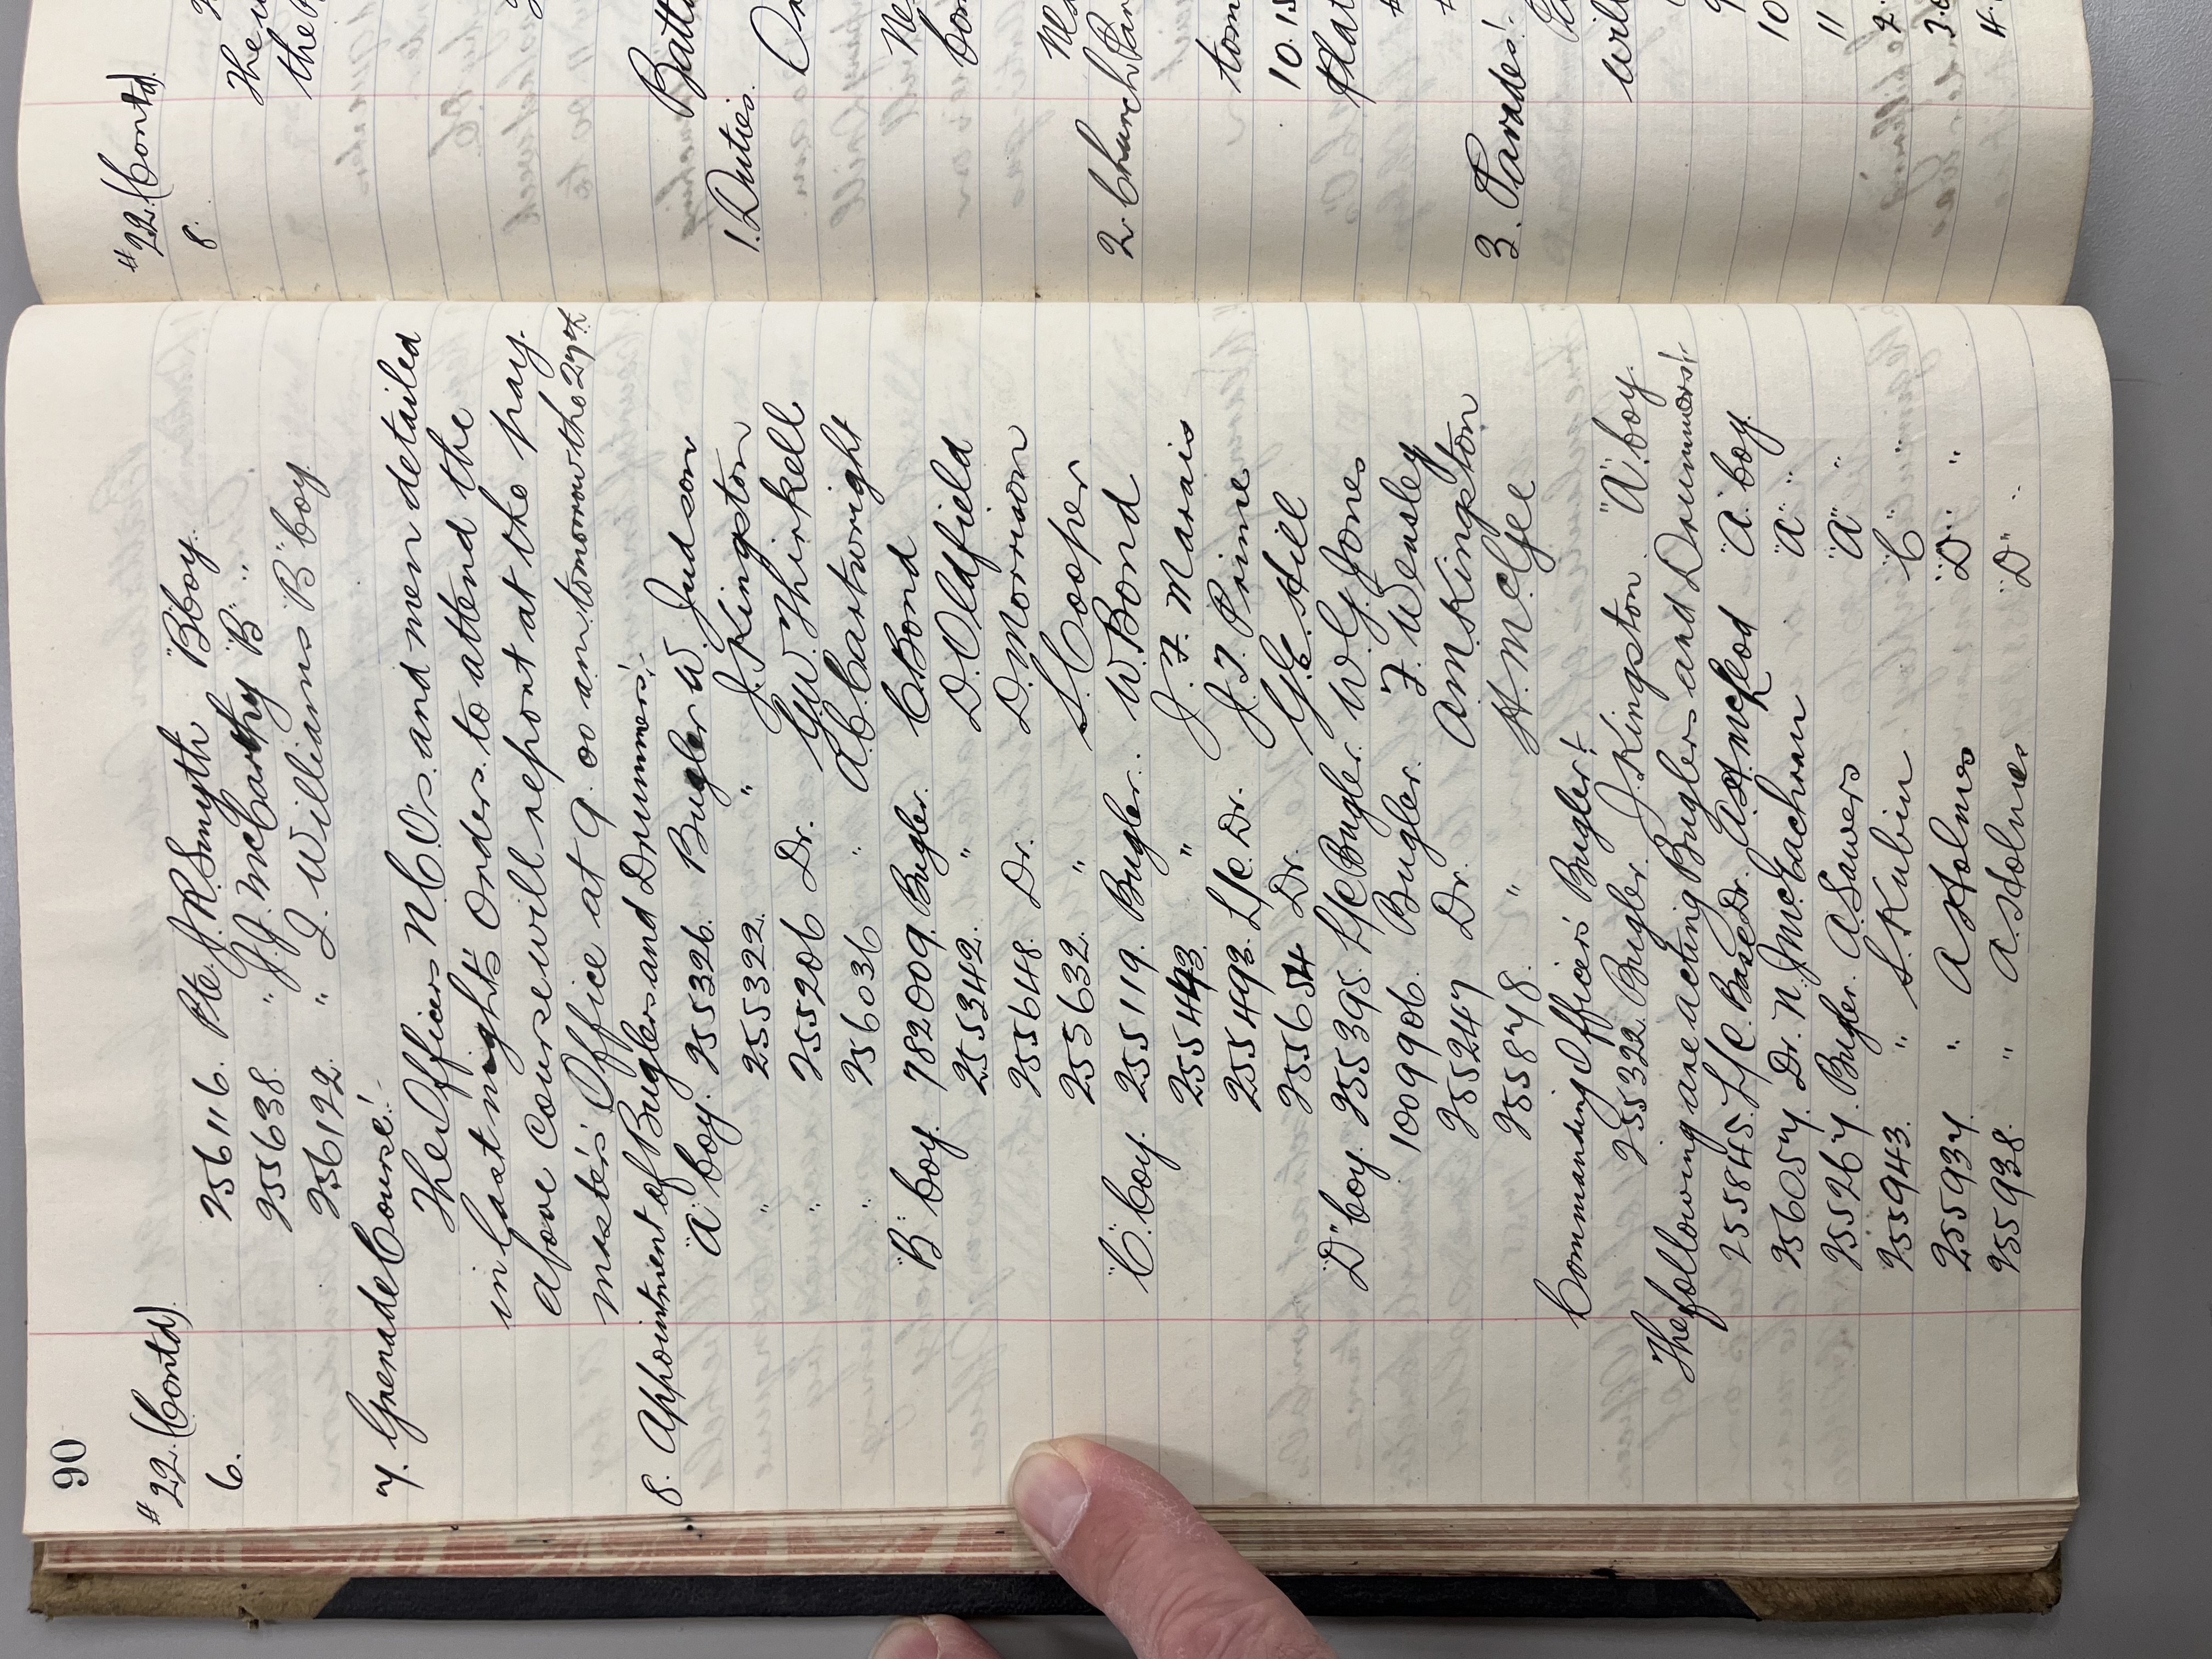 90
#22. (Contd)
6. 256116. Pte. J. R. Smyth "B" Coy.
255638. " J. J. McCarthy "B" "
256192. " J. Williams "B" Coy.
7. Grenade Course:-
The Officers N.C.O's. and men detailed
in last night's Orders to attend the
above Course will report at the pay-
master's Office at 9.00 am. tomorrow the 27th
8. Appointment of Buglers and Drummers:-
"A" Coy. 255326. Bugler W. Judson
" 255322. " J. Kingston
" 255206 Dr. G. W. Thirkell
" 256036 " A. C. Cartwright
"B" Coy. 782009. Bugler. C. Bond
255342. " D. Oldfield
255648. Dr. D. Morrison
255632. " S. Cooper
"C" Coy. 255119. Bugler. W. Bond
255443. " J. F. Marais
255493. L/c. Dr. J. T. Prime
255654 Dr. G. E. Hill
"D" Coy. 255395. L/c Bugler. W. G. Jones
1009906. Bugler. F. Wensley
255247 Dr. A M Kingston
255878. " H. McGee
Commanding Officer's Bugler:-
255322. Bugler. J. Kingston. "A" Coy.
The following are acting Buglers and Drummers:-
255845. L/c. Base Dr. A. McLeod "A" Coy.
256057. Dr. N. J. McEachran "A" "
255267. Bugler. A. Sawers "A" "
255943. " S. Kubin "C" "
255937. " A Holmes "D" "
255938. " A. Holmes "D" "
#22. (Contd)
8.
The
the
Batt
1. Duties.
Ne
Con
2. Church Par
tom
10.15
Plat
3. Parades:-
will
9
10
11
2.
3.0
4.